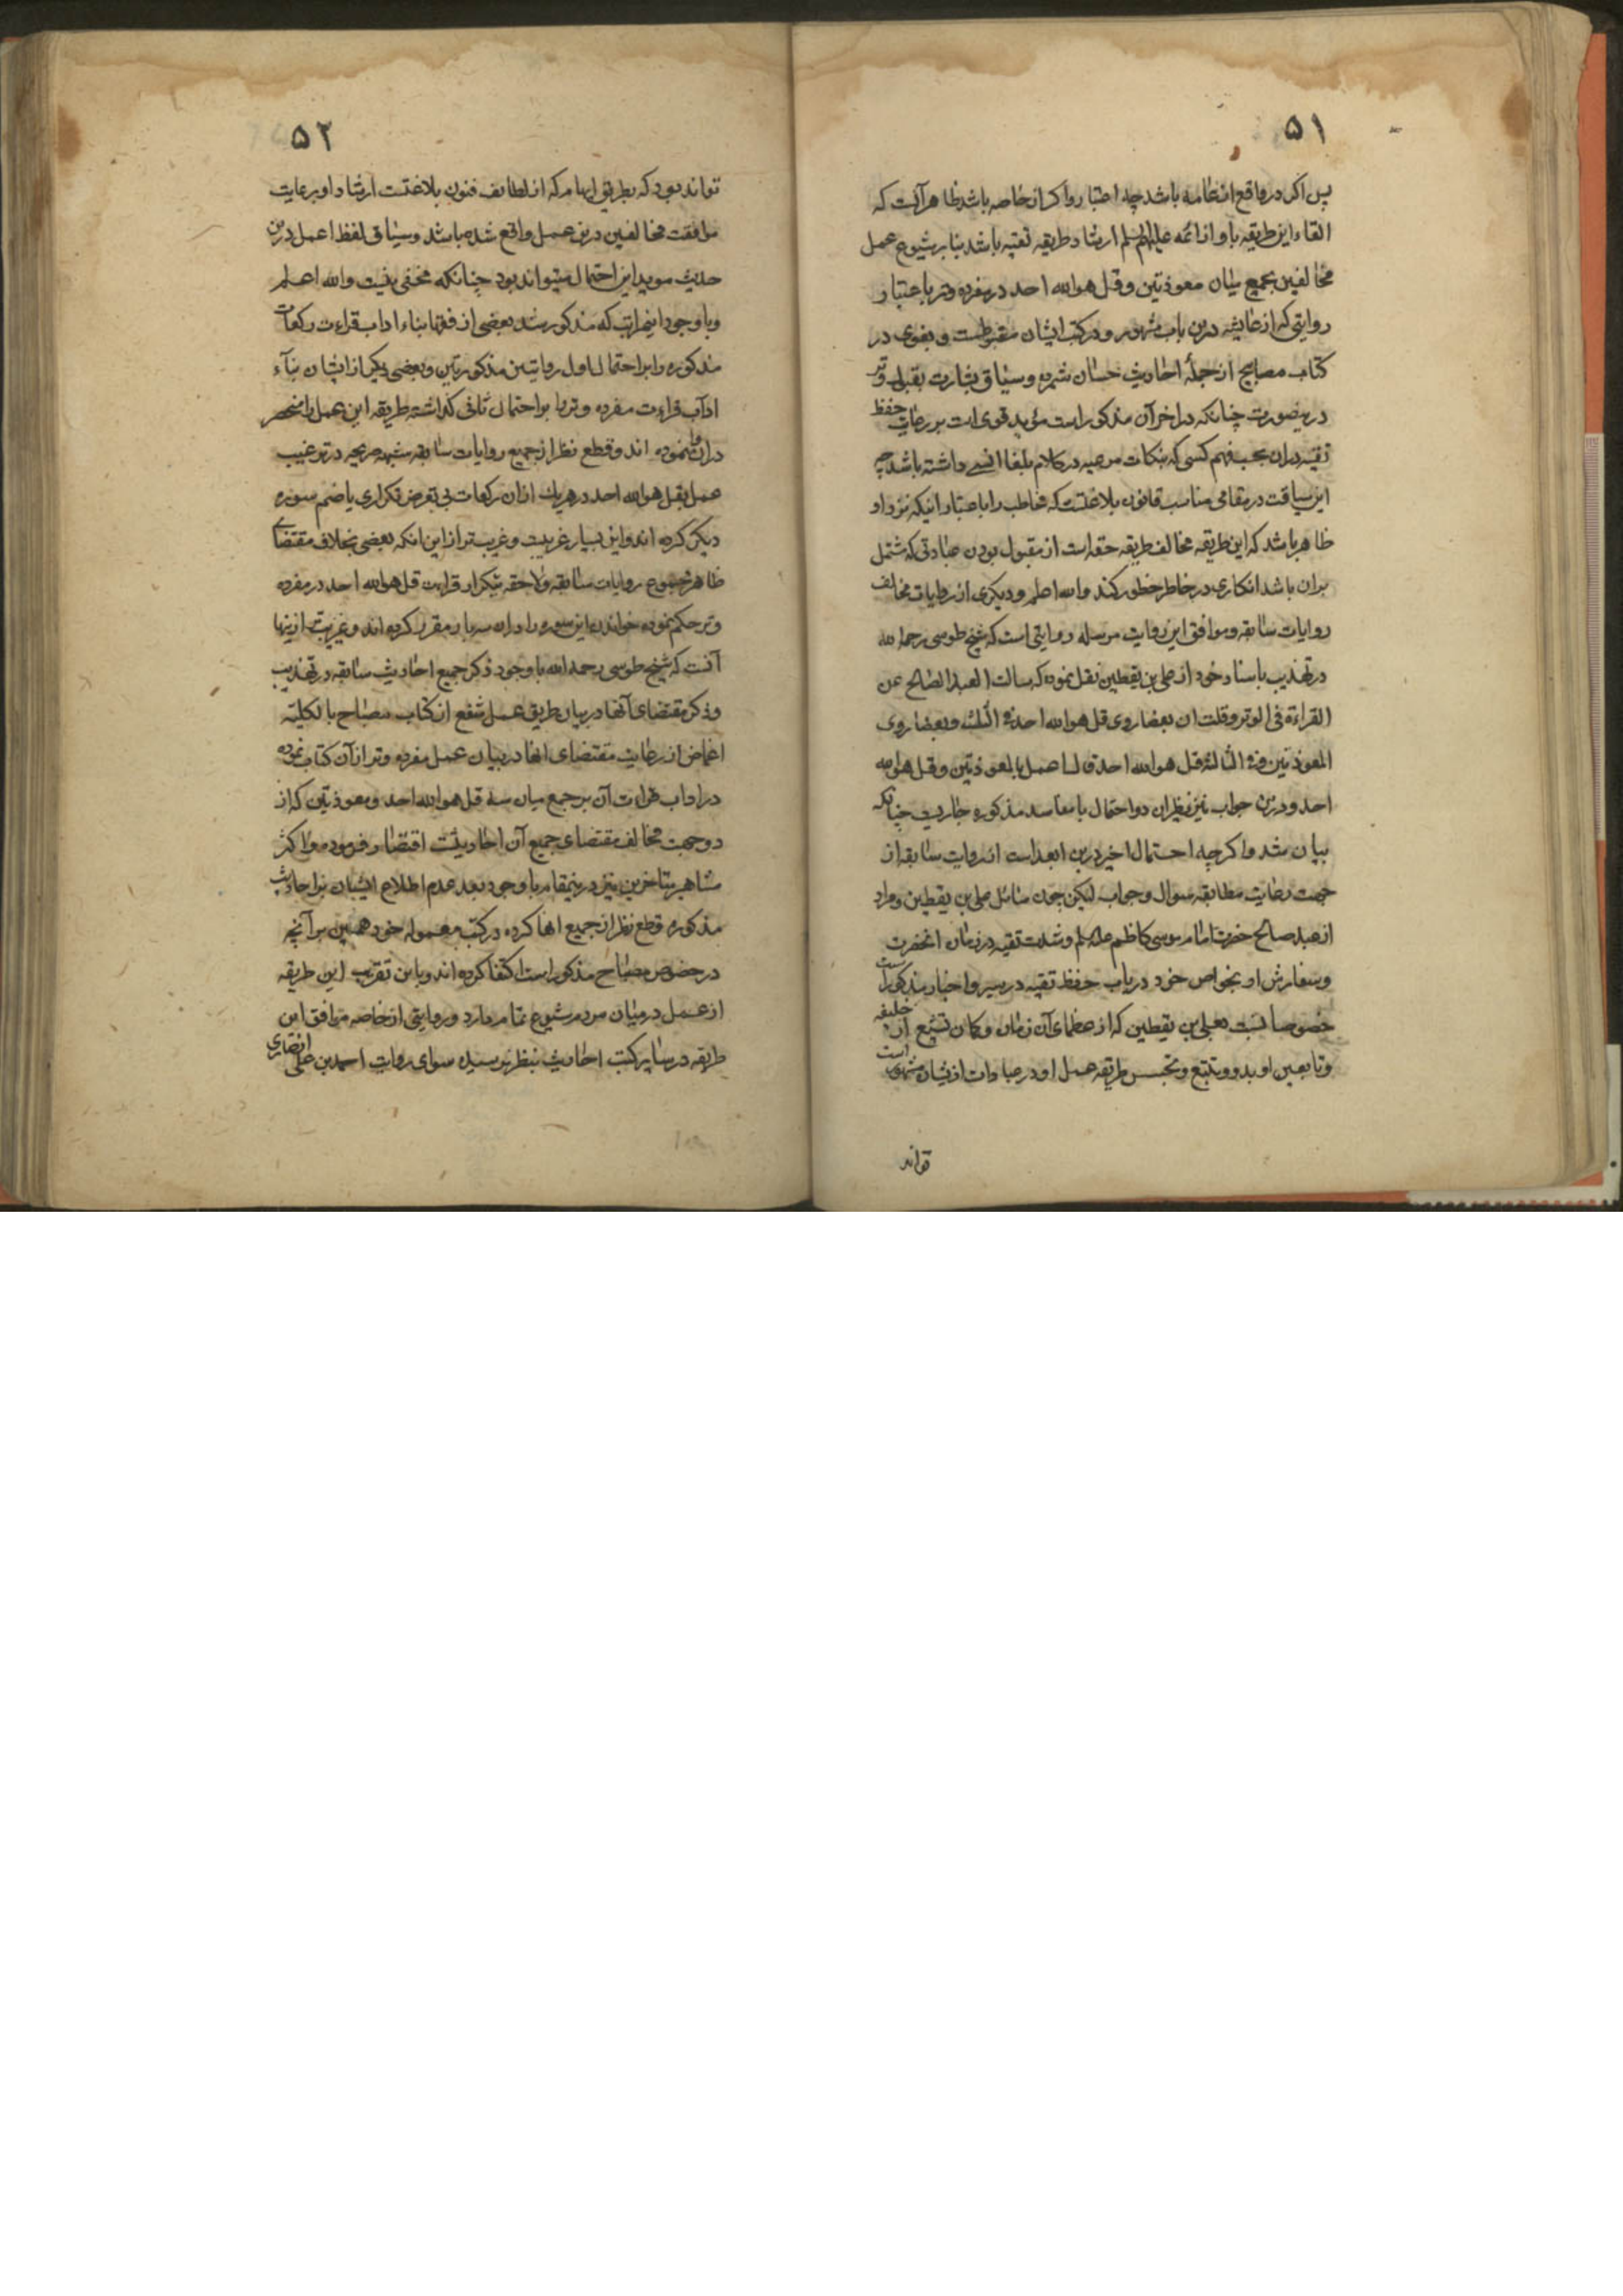 ۵۱
پس اگر در واقع از عامه باشد چه اعتبار و اگر از خاصه باشد ظاهر آنست که
القاء این طریقه باو از ائمه علیهم السلم ارشاد طریقه تقیه باشد بنا بر شیوع عمل
مخالفین بجمیع میان معوذتین و قل هو الله احد در مفرده وتر باعتبار
روایتی که از عایشه درین باب مشهور و در کتب ایشان مضبوطست و بغوی در
کتاب مصابیح از جملهٔ احادیث حسان شمرده و سیاق بشارت بقبل وتر
درینصورت چنانکه در اخر آن مذکور است مؤید قوی است بر رعایت حفظ
تقیه دران بحسب فهم کسی که بنکات مرعیه در کلام بلغا انسی داشته باشد چه
این سیاقت در مقامی مناسب قانون بلاغتست که مخاطب را باعتبار اینکه نزد او
ظاهر باشد که این طریقه مخالف طریقه حقه است از مقبول بودن عبادتی که مشتمل
بران باشد انکاری در خاطر خطور کند والله اعلم و دیگری از روایات مخالف
روایات سابقه و موافق این روایت مرسله روایتی است که شیخ طوسی رحمه الله
در تهذیب باسناد خود از علی بن یقطین نقل نموده که سالت العبد الصالح عن
القراءة فی الوتر وقلت ان بعضا روی قل هو الله احد فی الثلث وبعضا روی
المعوذتین وفی الثالثة قل هو الله احد قال اعمل بالمعوذتین وقل هو الله
احد و درین جواب نیز نظیران دو احتمال با مفاسد مذکوره جاریست چنانکه
بیان شد و اگرچه احتمال اخیر درین ابعد است از روایت سابقه از
جهت رعایت مطابقه سوال و جواب لیکن چون سائل علی بن یقطین و مراد
از عبد صالح حضرت امام موسی کاظم علیه السلم و شدت تقیه در زمان انحضرت
و سفارش او بخواص خود در باب حفظ تقیه در سیر و اخبار مذکور است
خصوصا نسبت بعلی بن یقطین که از عظمای آن زمان و کمان تشیع از خلیفه
و تابعین او بدو و تتبع و تجسس طریقه عمل او در عبادات ازیشان مشهور است
تواند
۵۲
تواند بود که بطریق ایهام که از لطایف فنون بلاغتست ارشاد او برعایت
موافقت مخالفین درین عمل واقع شده باشد و سیاق لفظ اعمل درین
حدیث موید این احتمال میتواند بود چنانکه مخفی نیست والله اعلم
و باوجود اینمراتب که مذکور شد بعضی از فقها بناء اداب قراءت رکعات
مذکوره را بر احتمال اول روایتین مذکورتین و بعضی دیگر از ایشان بناء
اداب قراءت مفرده وتر را بر احتمال ثانی گذاشته طریقه این عمل را منحصر
دران نموده اند و قطع نظر از جمیع روایات سابقه مشهوره صریحه در ترغیب
عمل بقل هو الله احد در هر یک ازان رکعات بی تعرض تکراری یا ضم سوره
دیگر کرده اند و این بسیار غریبست و غریبتر از این انکه بعضی بخلاف مقتضای
ظاهر مجموع روایات سابقه و لاحقه بتکرار قراءت قل هو الله احد در مفرده
وتر حکم نموده خواندن این سوره را دران سه بار مقرر کرده اند و غریبتر ازینها
آنست که شیخ طوسی رحمه الله باوجود ذکر جمیع احادیث سابقه در تهذیب
و ذکر مقتضای آنها در بیان طریق عمل شفع از کتاب مصباح بالکلیه
اغماض از رعایت مقتضای انها در بیان عمل مفرده وتر از آن کتاب نموده
در اداب قراءت آن بر جمع میان سه قل هو الله احد و معوذتین که از
دو جهت مخالف مقتضای جمیع آن احادیثست اقتصار فرموده و اکثر
مشاهیر متاخرین نیز درینمقام باوجود بعد عدم اطلاع ایشان بر احادیث
مذکوره قطع نظر از جمیع انها کرده در کتب معموله خود همین بر آنچه
در خصوص مصباح مذکور است اکتفا کرده اند و باین تقریب این طریقه
از عمل در میان مردم شیوع تمام دارد و روایتی از خاصه موافق این
طریقه در سایر کتب احادیث بنظر نرسیده سوای روایت احمد بن علی انصاری